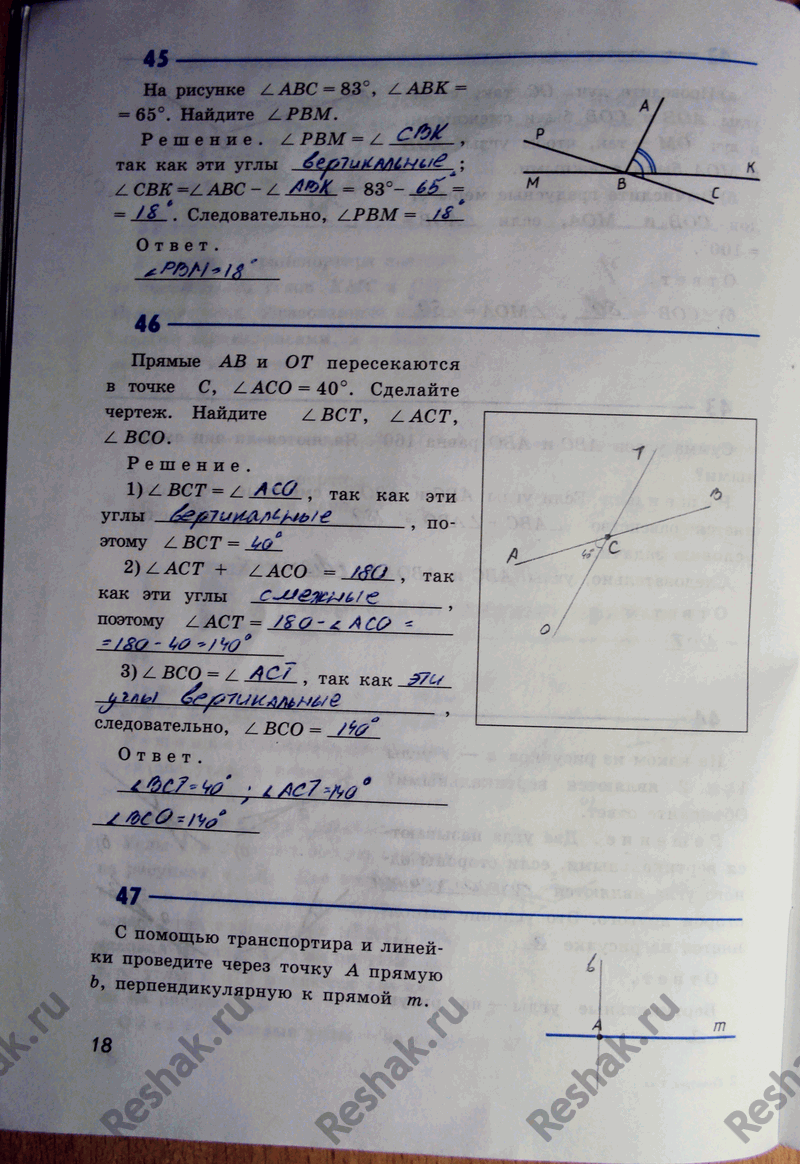 45
На рисунке ∠ABC = 83°, ∠ABK =
= 65°. Найдите ∠PBM.
Решение. ∠PBM = ∠ СВК,
так как эти углы вертикальные;
∠CBK = ∠ABC – ∠ АВК = 83°– 65° =
= 18°. Следовательно, ∠PBM = 18°
Ответ.
∠PBM = 18°
A
P
K
M
B
C
46
Прямые AB и OT пересекаются
в точке C, ∠ACO = 40°. Сделайте
чертеж. Найдите ∠BCT, ∠ACT,
∠BCO.
Решение.
1) ∠BCT = ∠ ACO, так как эти
углы вертикальные, по-
этому ∠BCT = 40°
2) ∠ACT + ∠ACO = 180, так
как эти углы смежные,
поэтому ∠ACT = 180 - ∠ACO =
= 180 - 40 = 140°
3) ∠BCO = ∠ ACT, так как эти
углы вертикальные,
следовательно, ∠BCO = 140°
Ответ.
∠BCT = 40°; ∠ACT = 140°
∠BCO = 140°
T
B
A
C
O
47
С помощью транспортира и линей-
ки проведите через точку A прямую
b, перпендикулярную к прямой m.
b
A
m
18
Reshak.ru
Reshak.ru
Reshak.ru
Reshak.ru